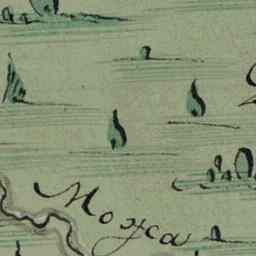 Можа